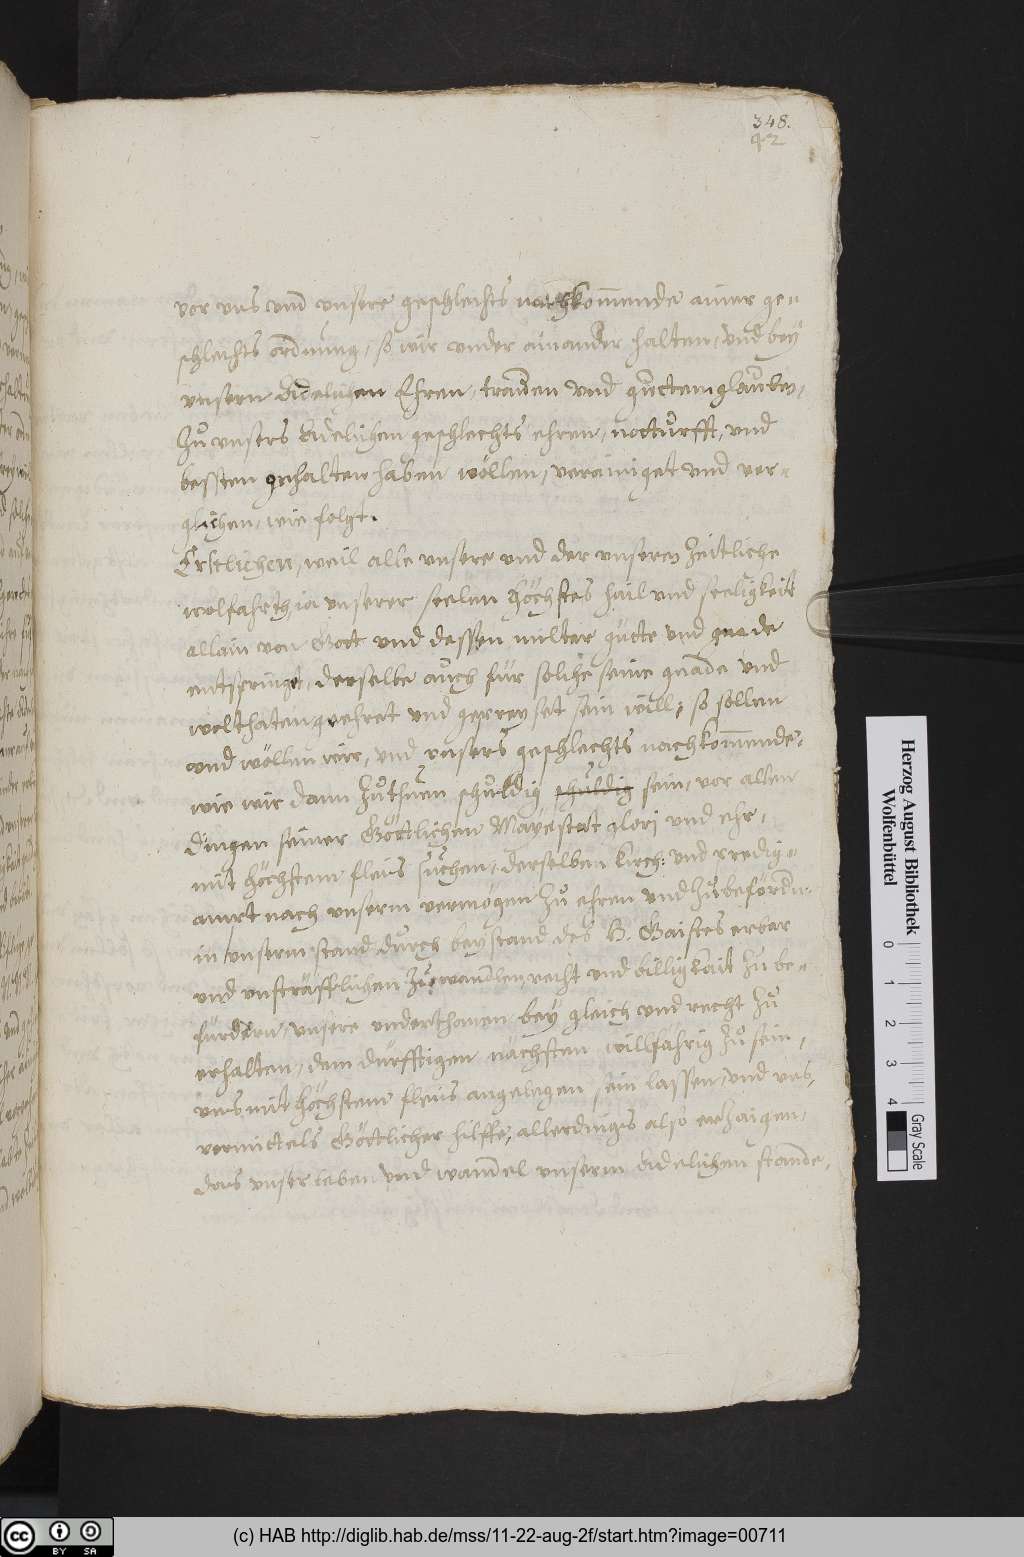 348.
42
vor uns und unsere geschlechts nachkom̄ende ainer ge-
schlechts ordnung, so wir under ainander halten, und bey
unsern Adelichen Ehren, trawen und guttem glauben,
zu unsers Adelichen geschlechts ehren, notturfft, und
besten gehalten haben wöllen, verainiget und ver-
glichen, wie folgt.
Erstlichen, weil alle unsere und der unseren zeitliche
wolfahrth, ia unserer seelen höchstes hail und seeligkeit
allain von Gott und dessen milter güete und gnade
entspringt, derselbe auch für solche seine gnade und
wolthaten geehret und gepreyset sein will, so sollen
und wöllen wir, und unsers geschlechts nachkom̄ende,
wie wir dann zuthuen schuldig schuldig sein, vor allen
dingen seiner Göttlichen Mayestat glori und ehr,
mit höchstem fleis suchen, derselben kirch: und predig-
ampt nach unserm vermögen zu ehren und zubefördern,
in unserm stand durch beystand des H. Gaistes erbar
und unsträfflichen zuwandlen, recht und billigkait zu be-
fürdern, unsere underthanen bey gleich und recht zu
erhalten, dem dürfftigen nächsten willfährig zu sein,
uns mit höchstem fleis angelegen sein lassen, und uns,
vermittels Göttlicher hilffe, allerdings also erzaigen,
das unser leben und wandel unserm Adelichen stande,
Herzog August Bibliothek
Wolfenbüttel
0 1 2 3 4
Gray Scale
cc BY SA
(c) HAB http://diglib.hab.de/mss/11-22-aug-2f/start.htm?image=00711